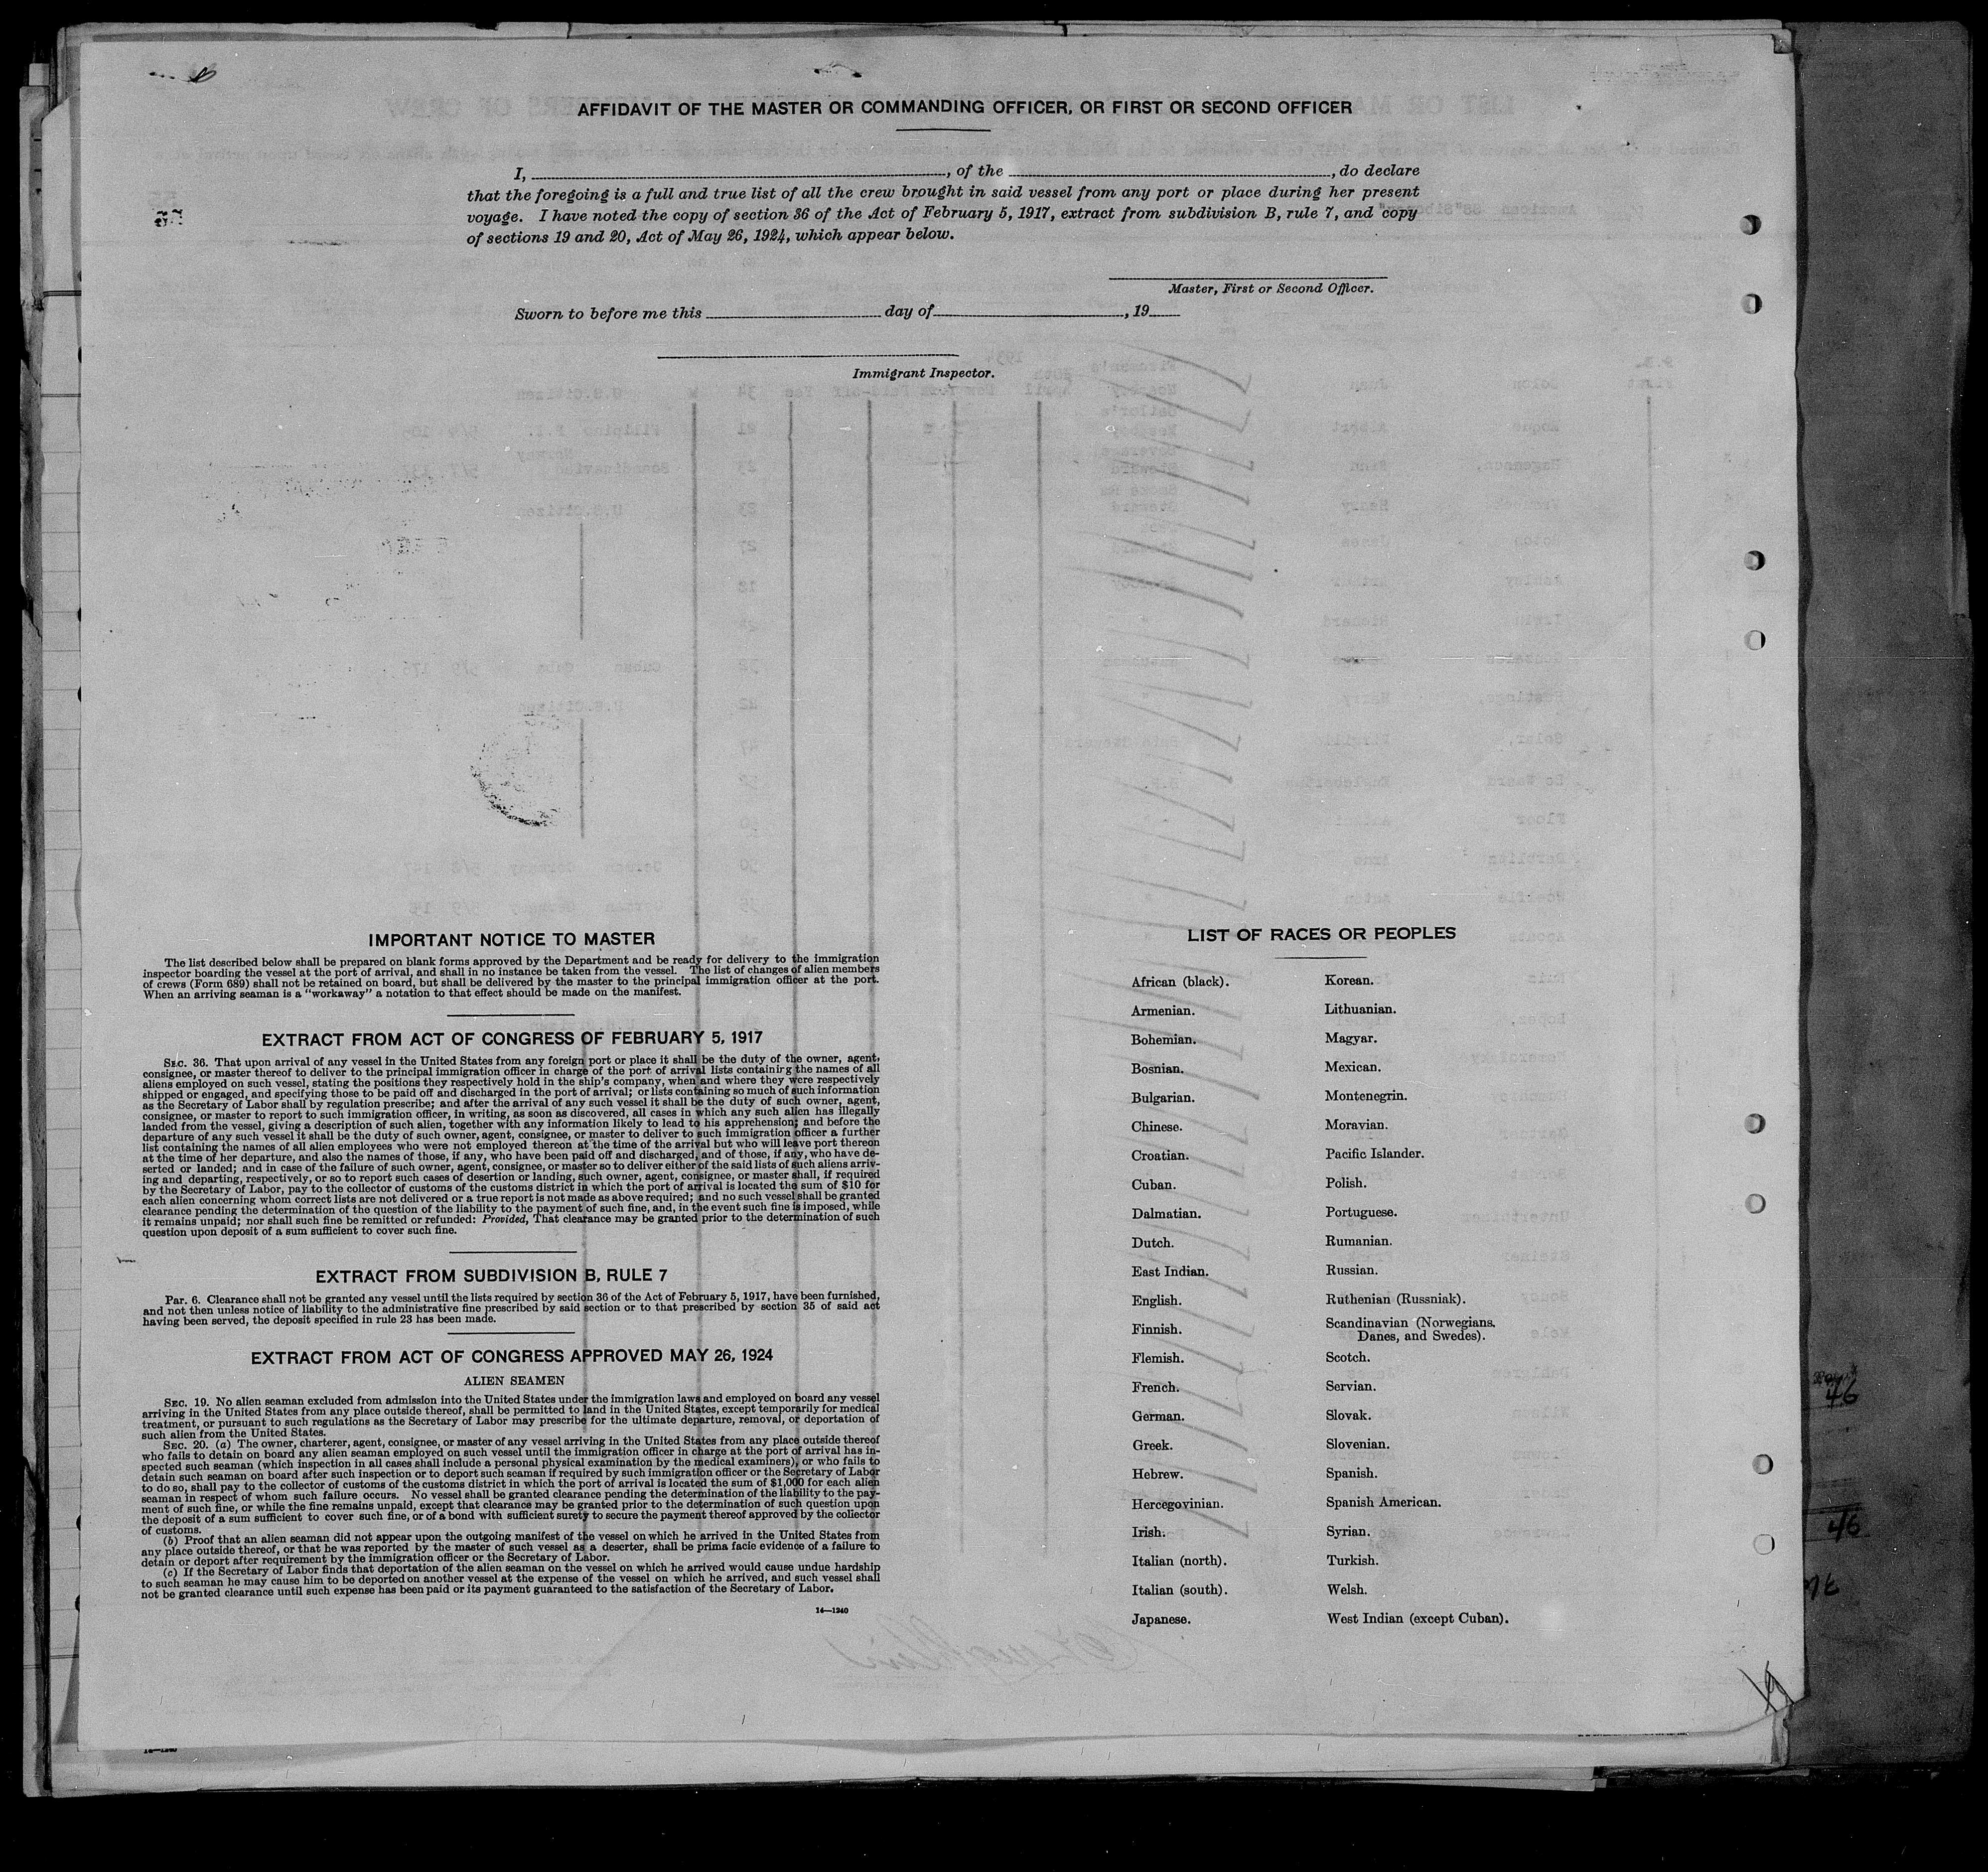 AFFIDAVIT OF THE MASTER OR COMMANDING OFFICER, OR FIRST OR SECOND OFFICER
I, , of the , do declare
that the foregoing is a full and true list of all the crew brought in said vessel from any port or place during her present
voyage. I have noted the copy of section 36 of the Act of February 5, 1917, extract from subdivision B, rule 7, and copy
of sections 19 and 20, Act of May 26, 1924, which appear below.
Master, First or Second Officer.
Sworn to before me this day of , 19
Immigrant Inspector.
IMPORTANT NOTICE TO MASTER
The list described below shall be prepared on blank forms approved by the Department and be ready for delivery to the immigration
inspector boarding the vessel at the port of arrival, and shall in no instance be taken from the vessel. The list of changes of alien members
of crews (Form 689) shall not be retained on board, but shall be delivered by the master to the principal immigration officer at the port.
When an arriving seaman is a "workaway" a notation to that effect should be made on the manifest.
EXTRACT FROM ACT OF CONGRESS OF FEBRUARY 5, 1917
SEC. 36. That upon arrival of any vessel in the United States from any foreign port or place it shall be the duty of the owner, agent,
consignee, or master thereof to deliver to the principal immigration officer in charge of the port of arrival lists containing the names of all
aliens employed on such vessel, stating the positions they respectively hold in the ship's company, when and where they were respectively
shipped or engaged, and specifying those to be paid off and discharged in the port of arrival; or lists containing so much of such information
as the Secretary of Labor shall by regulation prescribe; and after the arrival of any such vessel it shall be the duty of such owner, agent,
consignee, or master to report to such immigration officer, in writing, as soon as discovered, all cases in which any such alien has illegally
landed from the vessel, giving a description of such alien, together with any information likely to lead to his apprehension; and before the
departure of any such vessel it shall be the duty of such owner, agent, consignee, or master to deliver to such immigration officer a further
list containing the names of all alien employees who were not employed thereon at the time of the arrival but who will leave port thereon
at the time of her departure, and also the names of those, if any, who have been paid off and discharged, and of those, if any, who have de-
serted or landed; and in case of the failure of such owner, agent, consignee, or master so to deliver either of the said lists of such aliens arriv-
ing and departing, respectively, or so to report such cases of desertion or landing, such owner, agent, consignee, or master shall, if required
by the Secretary of Labor, pay to the collector of customs of the customs district in which the port of arrival is located the sum of $10 for
each alien concerning whom correct lists are not delivered or a true report is not made as above required; and no such vessel shall be granted
clearance pending the determination of the question of the liability to the payment of such fine, and, in the event such fine is imposed, while
it remains unpaid; nor shall such fine be remitted or refunded: Provided, That clearance may be granted prior to the determination of such
question upon deposit of a sum sufficient to cover such fine.
EXTRACT FROM SUBDIVISION B, RULE 7
Par. 6. Clearance shall not be granted any vessel until the lists required by section 36 of the Act of February 5, 1917, have been furnished,
and not then unless notice of liability to the administrative fine prescribed by said section or to that prescribed by section 35 of said act
having been served, the deposit specified in rule 23 has been made.
EXTRACT FROM ACT OF CONGRESS APPROVED MAY 26, 1924
ALIEN SEAMEN
SEC. 19. No alien seaman excluded from admission into the United States under the immigration laws and employed on board any vessel
arriving in the United States from any place outside thereof, shall be permitted to land in the United States, except temporarily for medical
treatment, or pursuant to such regulations as the Secretary of Labor may prescribe for the ultimate departure, removal, or deportation of
such alien from the United States.
SEC. 20. (a) The owner, charterer, agent, consignee, or master of any vessel arriving in the United States from any place outside thereof
who fails to detain on board any alien seaman employed on such vessel until the immigration officer in charge at the port of arrival has in-
spected such seaman (which inspection in all cases shall include a personal physical examination by the medical examiners), or who fails to
detain such seaman on board after such inspection or to deport such seaman if required by such immigration officer or the Secretary of Labor
to do so, shall pay to the collector of customs of the customs district in which the port of arrival is located the sum of $1,000 for each alien
seaman in respect of whom such failure occurs. No vessel shall be granted clearance pending the determination of the liability to the pay-
ment of such fine, or while the fine remains unpaid, except that clearance may be granted prior to the determination of such question upon
the deposit of a sum sufficient to cover such fine, or of a bond with sufficient surety to secure the payment thereof approved by the collector
of customs.
(b) Proof that an alien seaman did not appear upon the outgoing manifest of the vessel on which he arrived in the United States from
any place outside thereof, or that he was reported by the master of such vessel as a deserter, shall be prima facie evidence of a failure to
detain or deport after requirement by the immigration officer or the Secretary of Labor.
(c) If the Secretary of Labor finds that deportation of the alien seaman on the vessel on which he arrived would cause undue hardship
to such seaman he may cause him to be deported on another vessel at the expense of the vessel on which he arrived, and such vessel shall
not be granted clearance until such expense has been paid or its payment guaranteed to the satisfaction of the Secretary of Labor.
14—1240
LIST OF RACES OR PEOPLES
African (black).
Armenian.
Bohemian.
Bosnian.
Bulgarian.
Chinese.
Croatian.
Cuban.
Dalmatian.
Dutch.
East Indian.
English.
Finnish.
Flemish.
French.
German.
Greek.
Hebrew.
Hercegovinian.
Irish.
Italian (north).
Italian (south).
Japanese.
Korean.
Lithuanian.
Magyar.
Mexican.
Montenegrin.
Moravian.
Pacific Islander.
Polish.
Portuguese.
Rumanian.
Russian.
Ruthenian (Russniak).
Scandinavian (Norwegians,
Danes, and Swedes).
Scotch.
Servian.
Slovak.
Slovenian.
Spanish.
Spanish American.
Syrian.
Turkish.
Welsh.
West Indian (except Cuban).
46
46